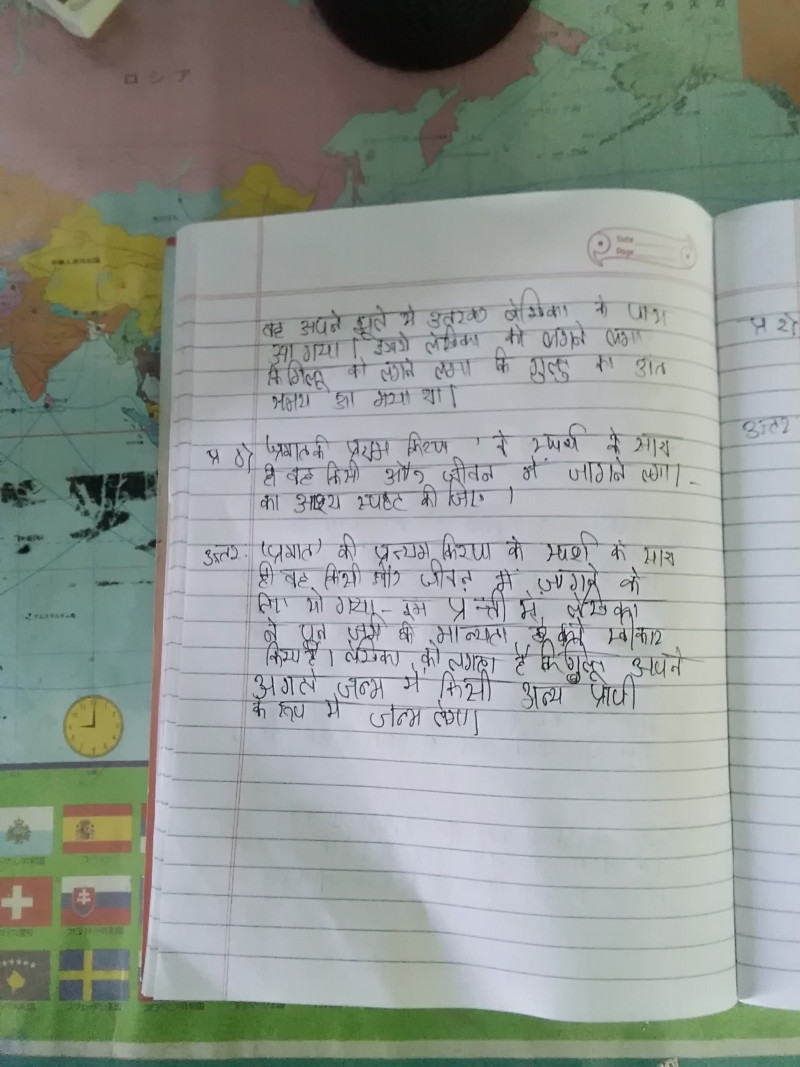 ロシア
Date
Page
वह अपने झूले से उतरकर लेखिका के पास
आ गया। इससे लेखिका को लगने लगा
कि गिल्लू को लगने लगा कि गुल्लु का अंत
समय आ गया था।
प्र 8) 'प्रभात की प्रथम किरण' के स्पर्श के साथ
ही वह किसी और जीवन में जागने लगा।-
का आश्य स्पष्ट कीजिए।
उत्तर. 'प्रभात' की प्रत्यम किरण के स्पर्श के साथ
ही वह किसी और जीवन में जागने के
लिए सो गया- इस में लेखिका
ने पुन जन्म की मान्यता स्वीकार
किया है। लेखिका को लगता है कि गिल्लू अपने
अगले जन्म में किसी अन्य प्राणी
के रूप में जन्म लेगा।
प्र
उत्तर